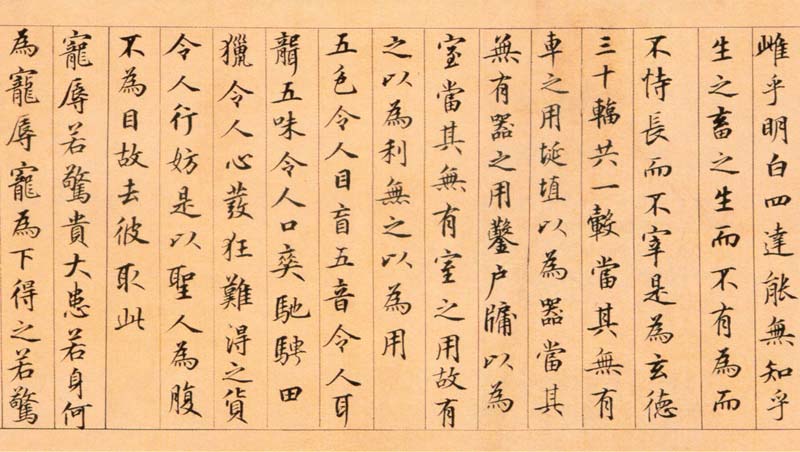 雌乎明白四達能無知乎
生之畜之生而不有為而
不恃長而不宰是為玄德
三十輻共一轂當其無有
車之用埏埴以為器當其
無有器之用鑿户牖以為
室當其無有室之用故有
之以為利無之以為用
五色令人目盲五音令人耳
聾五味令人口爽馳騁田
獵令人心發狂難得之貨
令人行妨是以聖人為腹
不為目故去彼取此
寵辱若驚貴大患若身何
為寵辱寵為下得之若驚